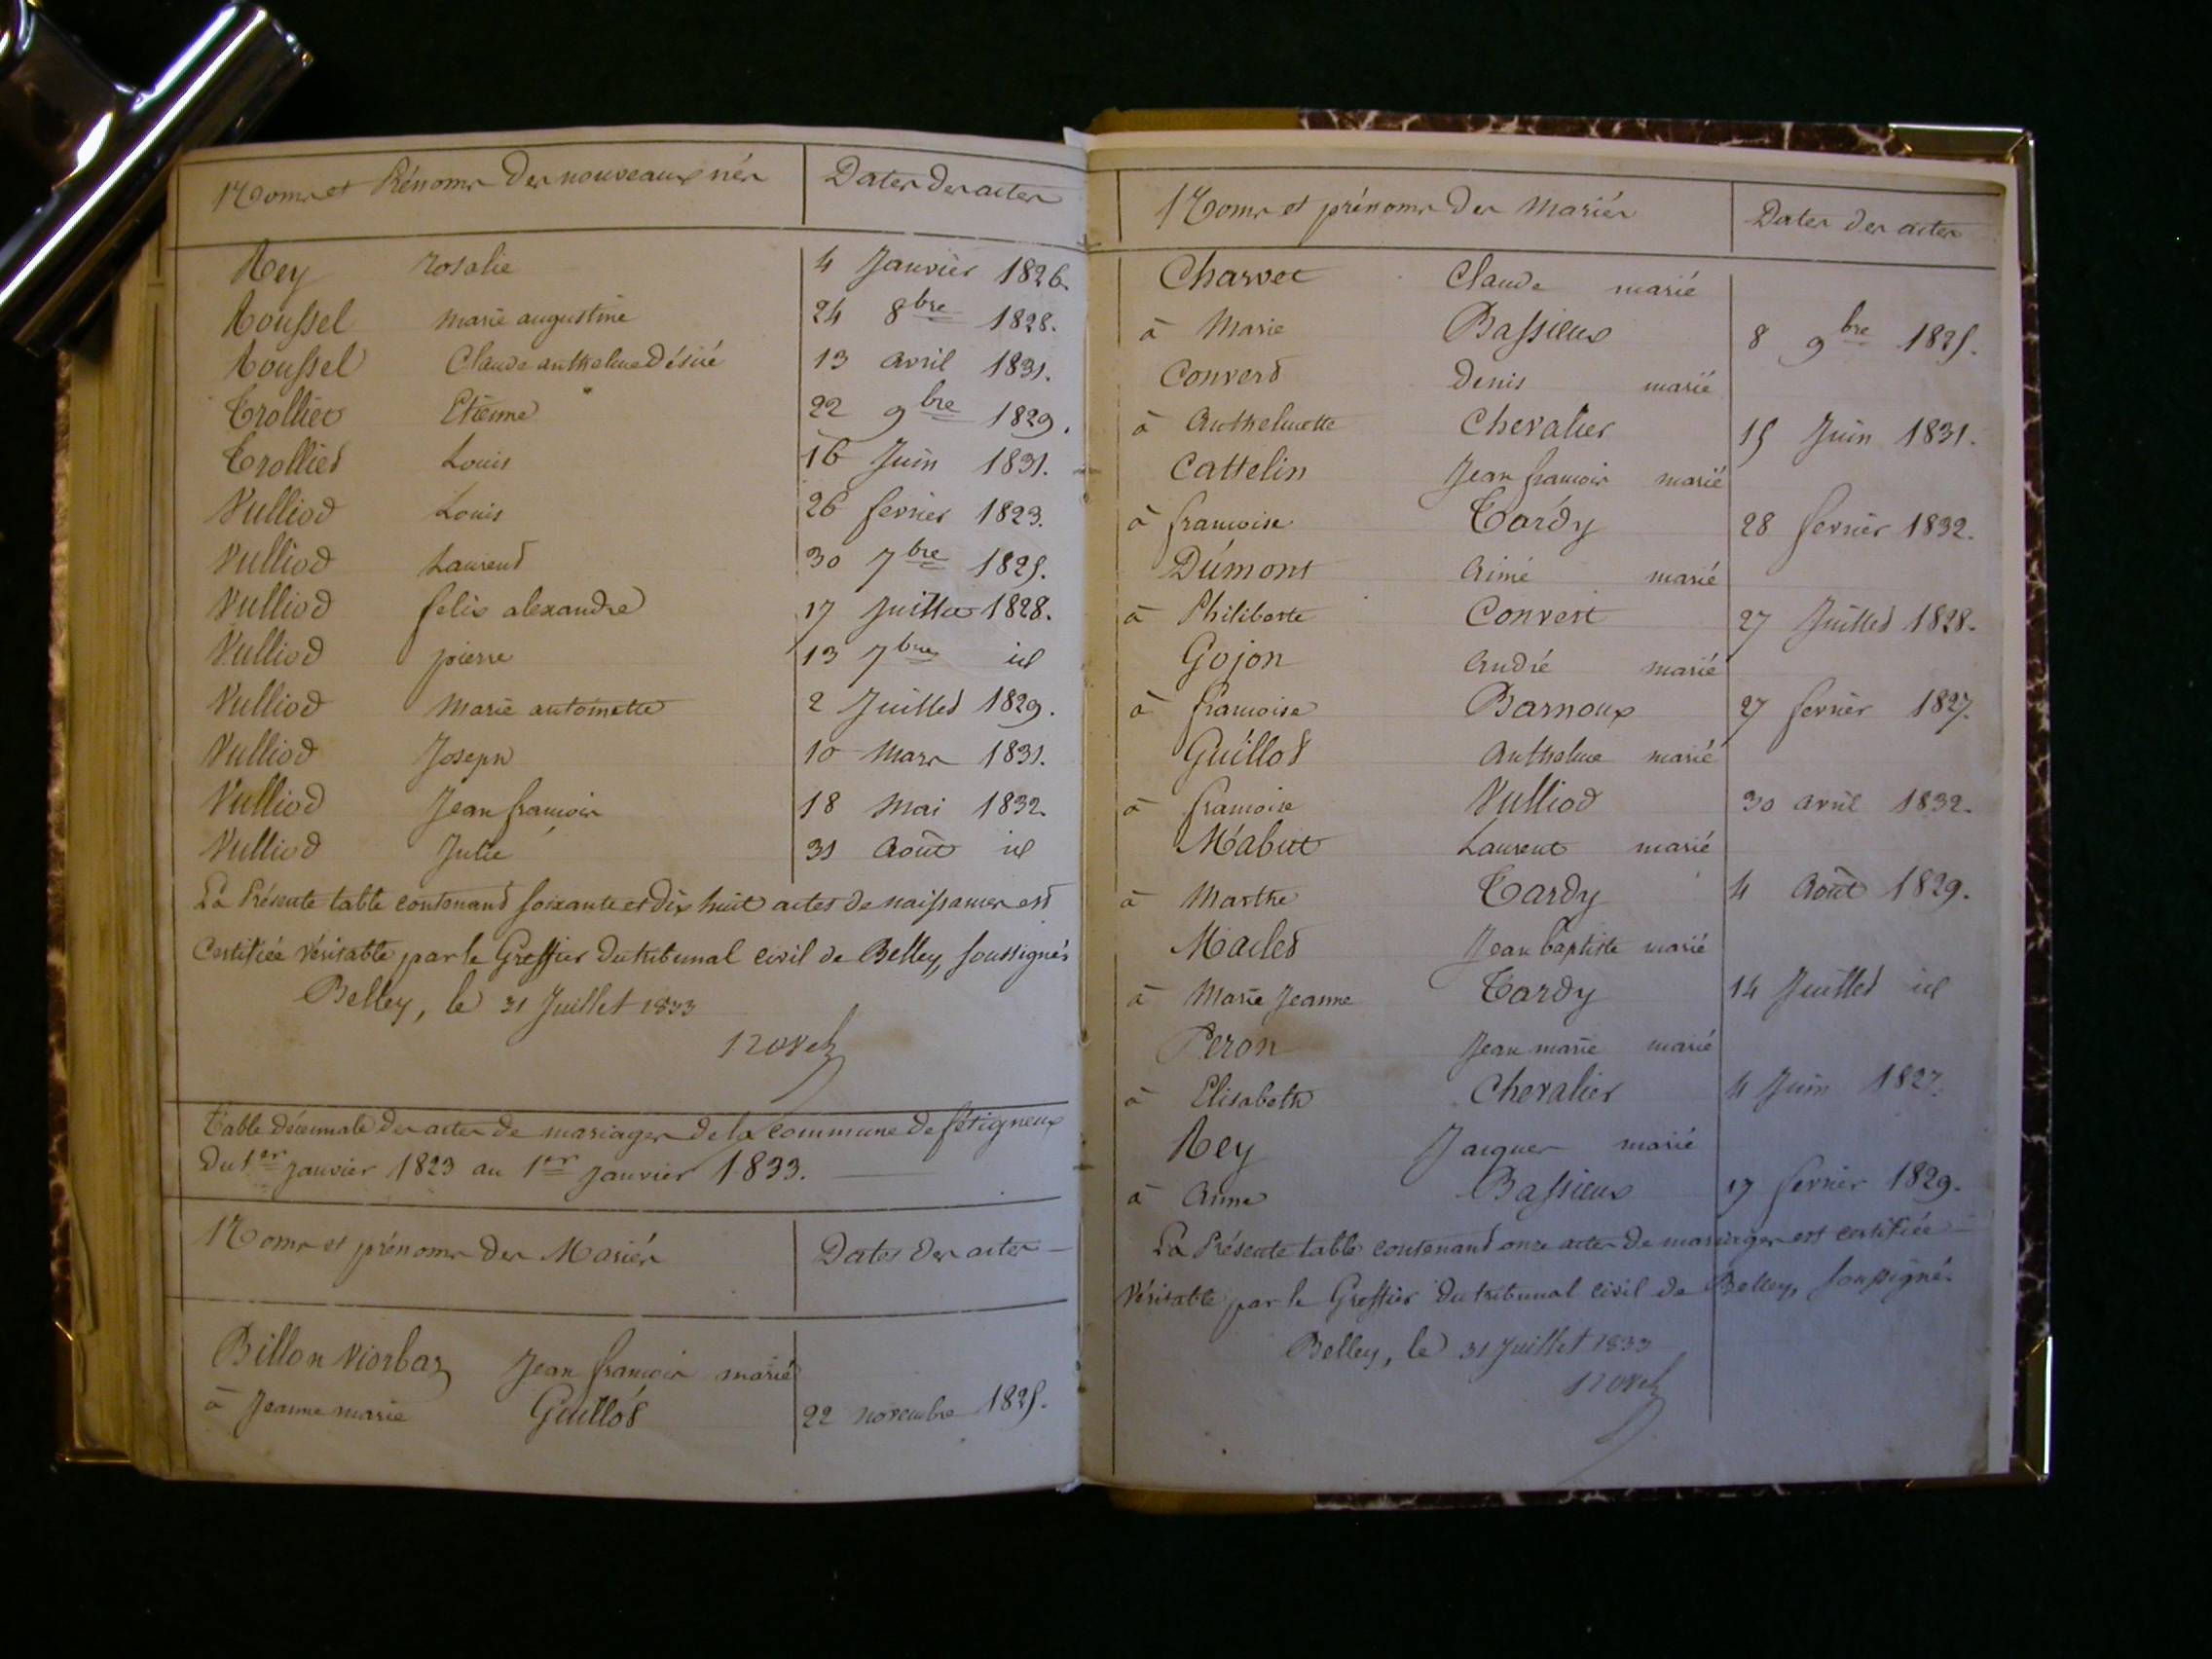 Noms et Prénoms des nouveaux nés Dates des actes
Rey rosalie 4 Janvier 1826.
Roussel marie augustine 24 8bre 1828.
Roussel Claude anthelme Désiré 13 avril 1831.
Trolliet Etienne 22 9bre 1829.
Trolliet Louis 16 Juin 1831.
Vulliod Louis 26 fevrier 1823.
Vulliod Laurent 30 7bre 1825.
Vulliod felix alexandre 17 Juillet 1828.
Vulliod pierre 13 7bre id
Vulliod Marie antoinette 2 Juillet 1829.
Vulliod Joseph 10 Mars 1831.
Vulliod Jean francois 18 Mai 1832
Vulliod Julie 31 Août id
La Présente table contenant soixante et dix huit actes de naissances est
Certifiée Véritable par le Greffier du tribunal civil de Belley, soussigné.
Belley, le 31 Juillet 1833
Table décennale des actes de mariages de la commune de fétigneux
Du 1er Janvier 1823 au 1er Janvier 1833.
Noms et prénoms des Mariés Dates des actes
Billon Viorbaz Jean francois marié
à Jeanne marie Guillot 22 novembre 1825.
Noms et prénoms des Mariés Dates des actes
Charvet Claude marié
à Marie Bassieux 8 9bre 1825.
Convert Denis marié
à Anthelmette Chevalier 15 Juin 1831.
Cattelin Jean francois marié
à francoise Tardy 28 fevrier 1832.
Dumont Aimé marié
à Philiberte Convert 27 Juillet 1828.
Gojon André marié
à francoise Barnoux 27 fevrier 1827.
Guillot Anthelme marié
à francoise Vulliod 30 avril 1832.
Mabut Laurent marié
à Marthe Tardy 4 Août 1829.
Maclet Jean baptiste marié
à Marie Jeanne Tardy 14 Juillet id
Peron Jean marie marié
à Elisabeth Chevalier 4 Juin 1827.
Rey Jacques marié
à Anne Bassieux 17 fevrier 1829.
La Présente table contenant onze actes de mariages est certifiée
Véritable par le Greffier du tribunal civil de Belley, soussigné.
Belley, le 31 Juillet 1833